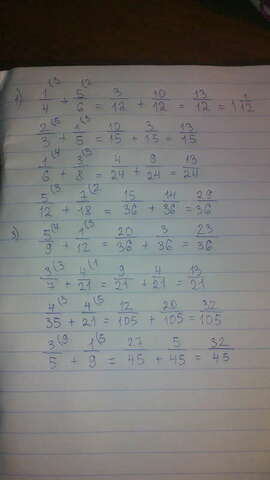 1) 1/4 (3 + 5/6 (2 = 3/12 + 10/12 = 13/12 = 1 1/12
2/3 (5 + 1/5 (3 = 10/15 + 3/15 = 13/15
1/6 (4 + 3/8 (3 = 4/24 + 9/24 = 13/24
5/12 (3 + 7/18 (2 = 15/36 + 14/36 = 29/36
2) 5/9 (4 + 1/12 (3 = 20/36 + 3/36 = 23/36
3/7 (3 + 4/21 (1 = 9/21 + 4/21 = 13/21
4/35 (3 + 4/21 (5 = 12/105 + 20/105 = 32/105
3/5 (9 + 1/9 (5 = 27/45 + 5/45 = 32/45